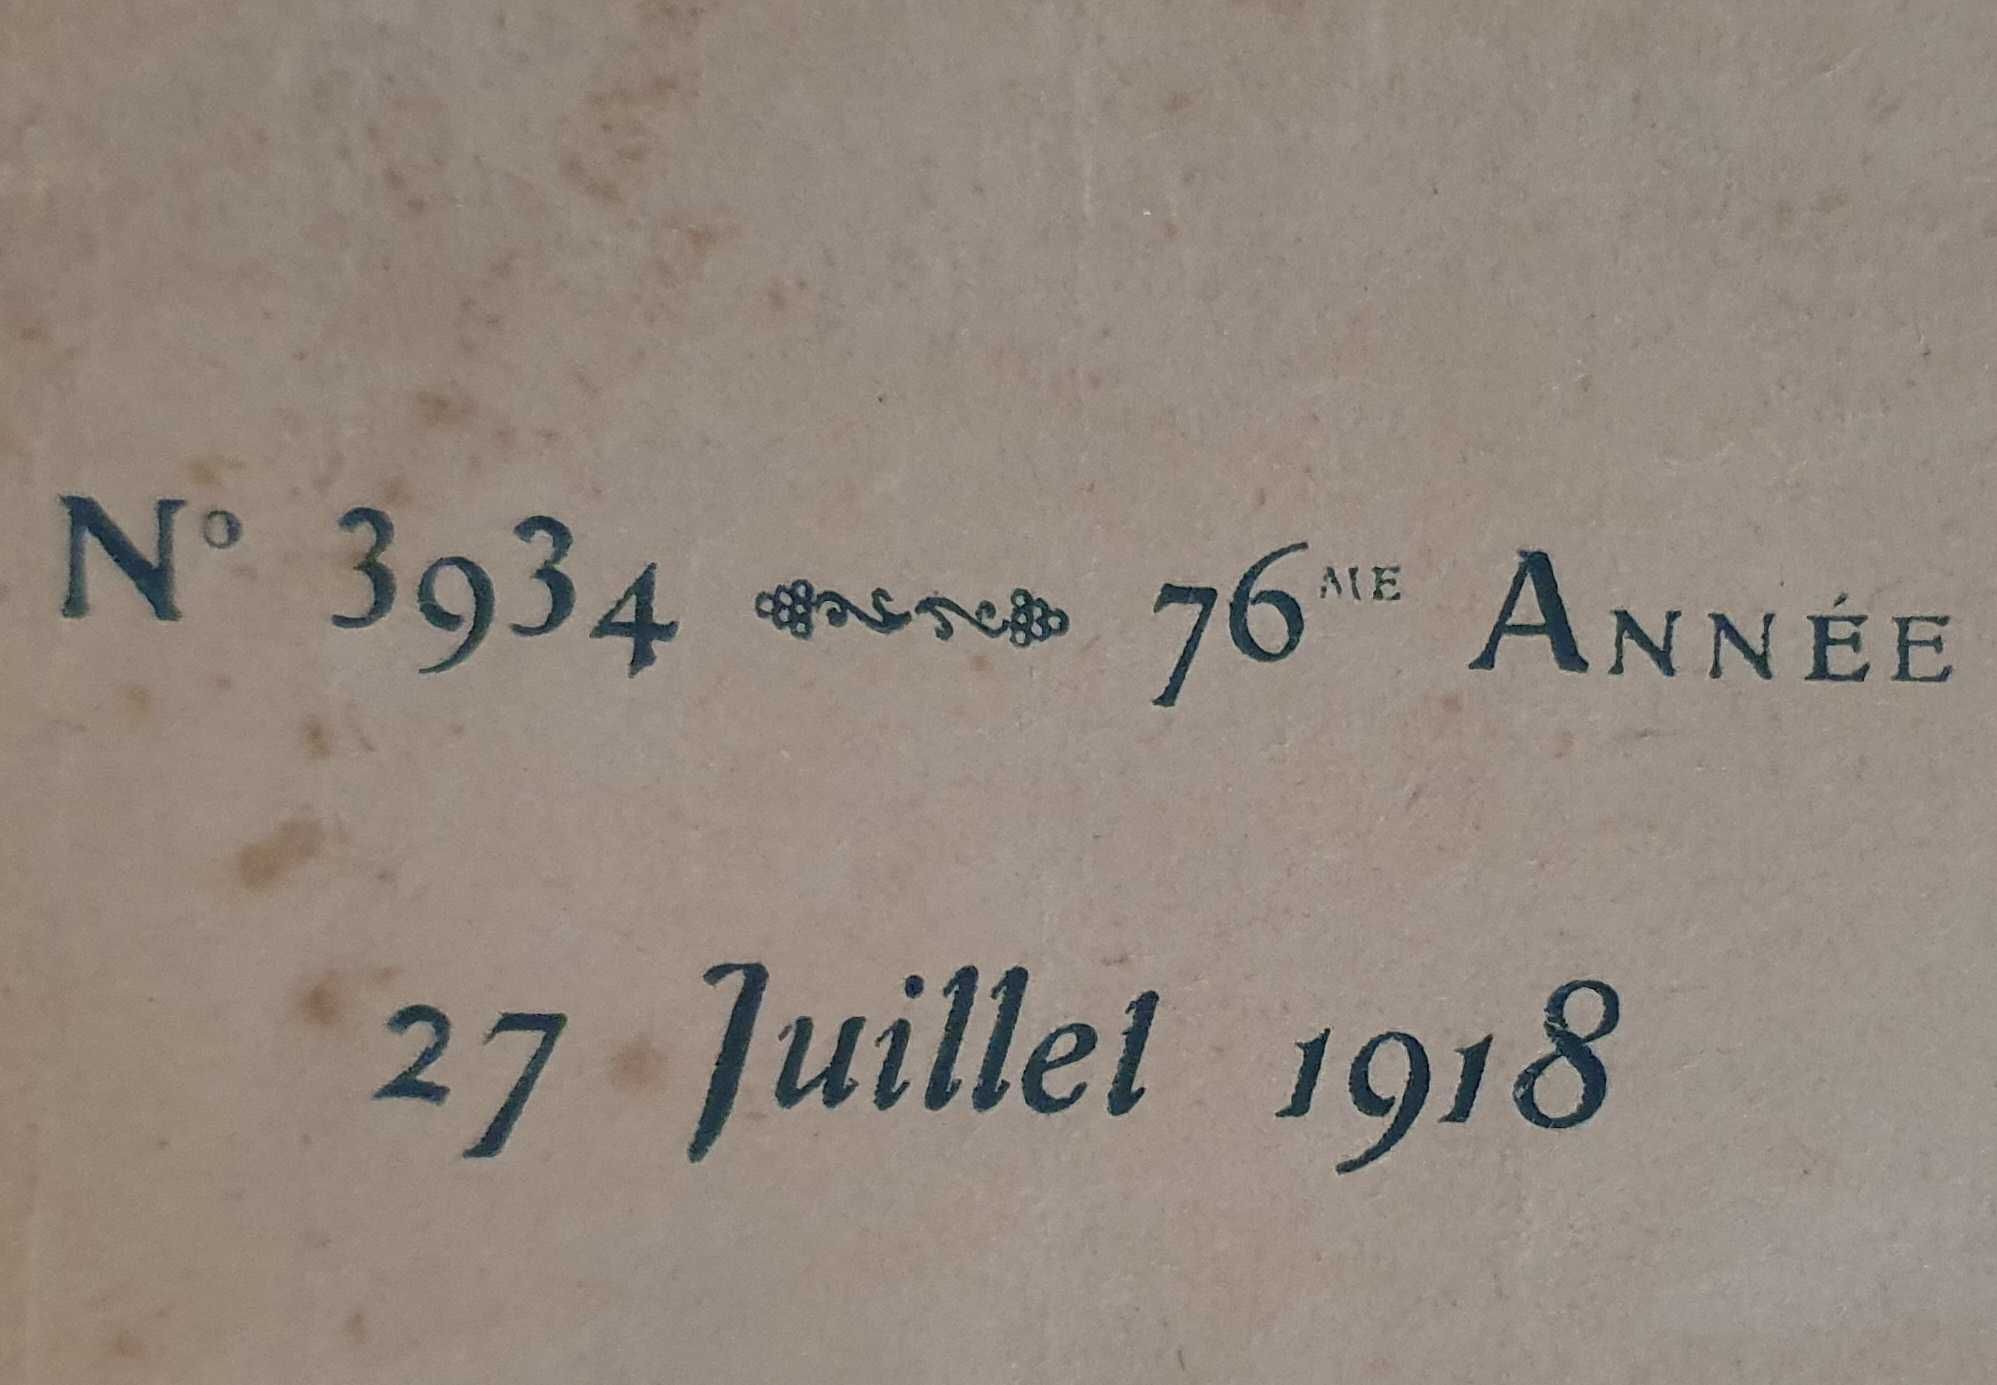 Nº 3934 76ME ANNÉE
27 Juillet 1918